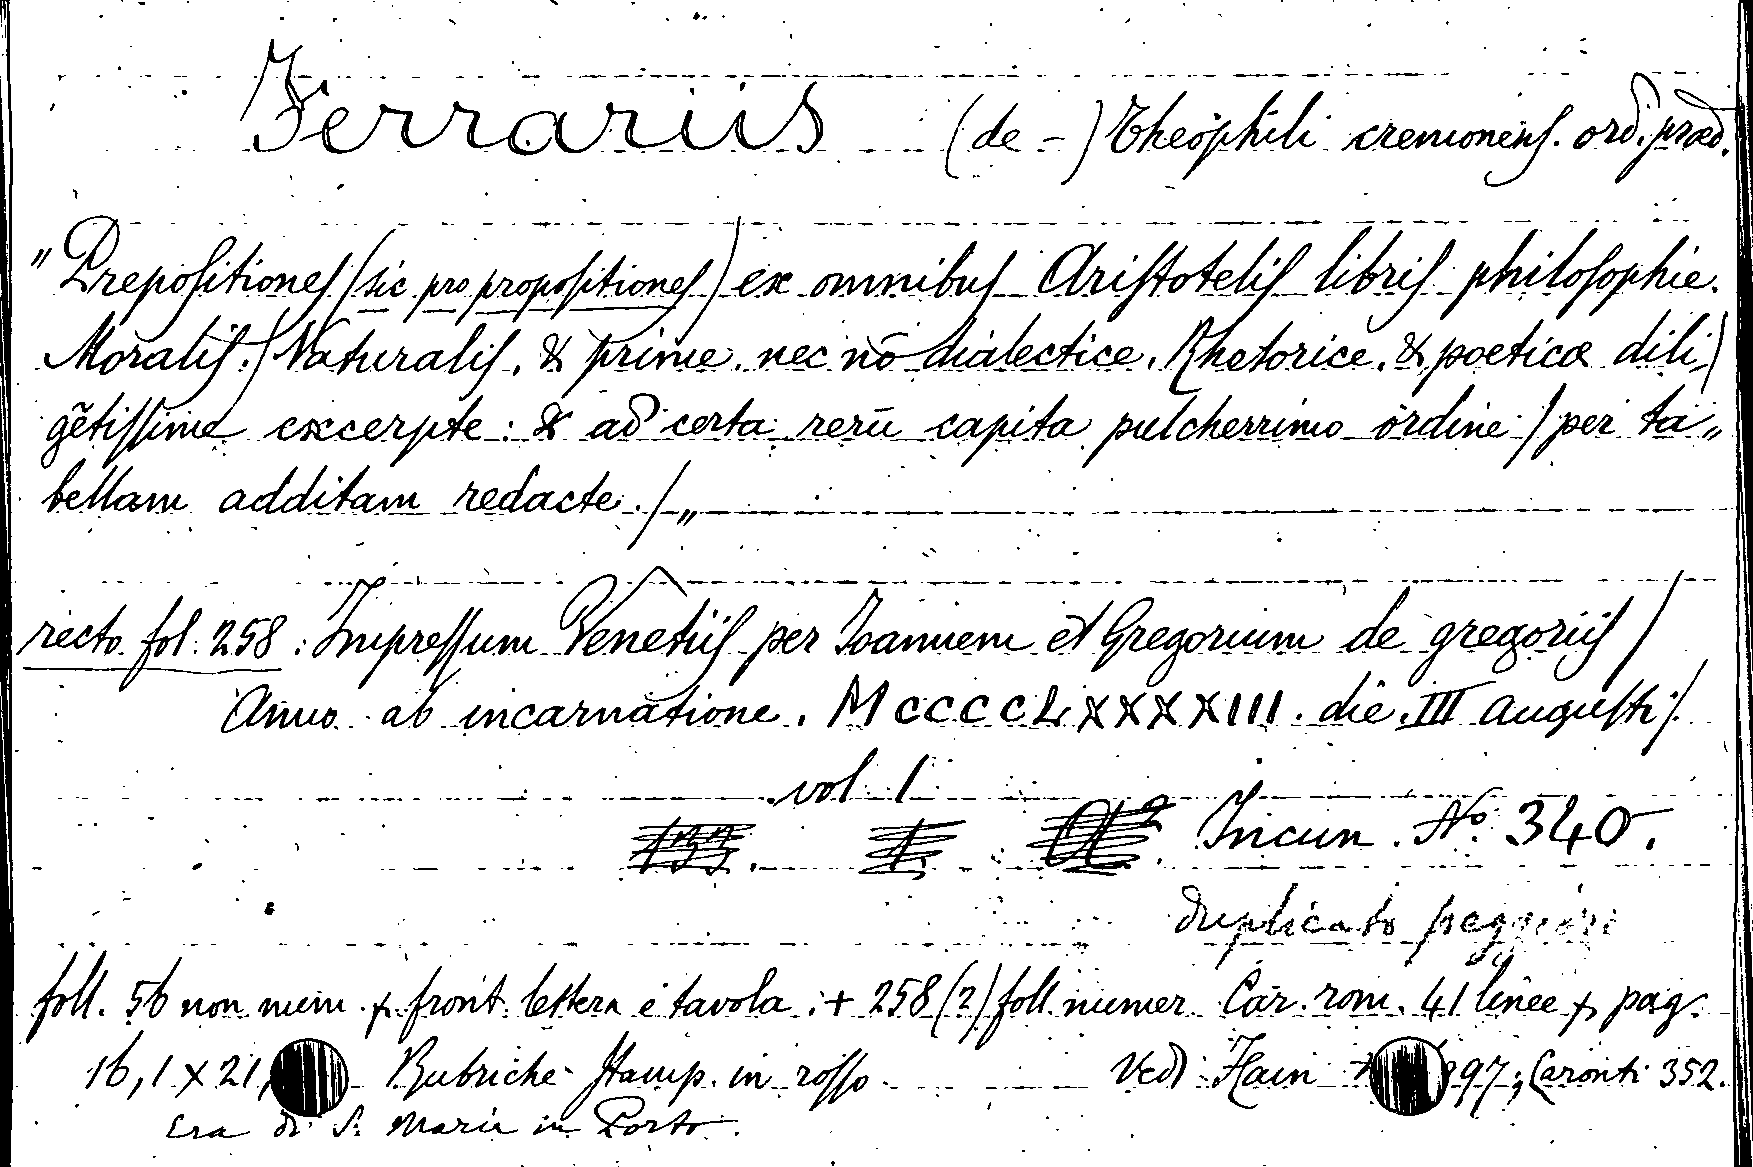 Ferrariis (de -) Theophili cremonens. ord. præd.
"Prepositiones (sic pro propositiones) ex omnibus Aristotelis libris philosophie.
Moralis./ Naturalis. & prime. nec nō dialectice. Rhetorice. & poeticæ dili/
gētissime excerpte: & ad certa rerū capita pulcherrimo ordine / per ta„
bellam additam redacte./„
recto fol. 258: Impressum Venetiis per Ioannem et Gregorium de gregoriis /
Anno ab incarnatione. MCCCCLXXXXIII. die. III augusti/.
vol 1
Incun. No. 340.
duplicato peggiore
foll. 56 non num. x front. lettera e tavola: + 258 (2) foll. numer Car. rom. 41 linee x pag.
16,1 x 21, Rubriche stamp. in rosso Vedi Hain 997; Caronti 352.
Era di S. Maria in Porto.